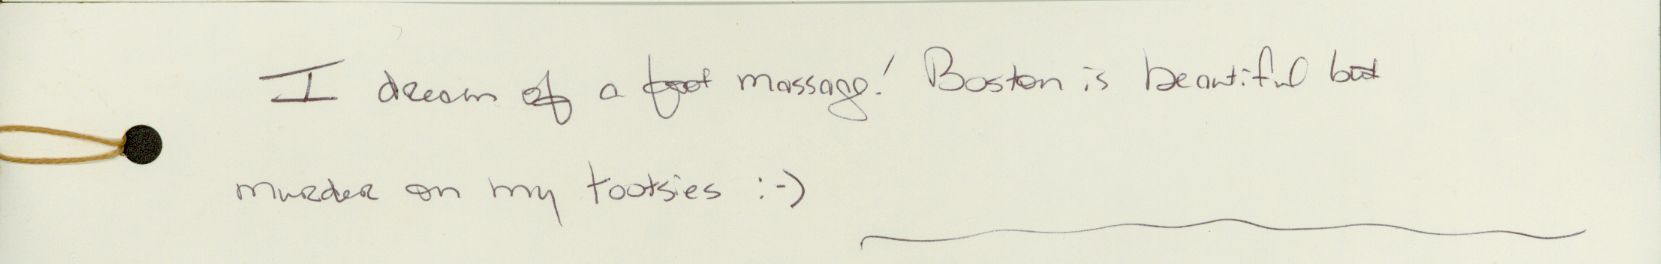 I dream of a foot massage! Boston is beautiful but
murder on my tootsies :-)